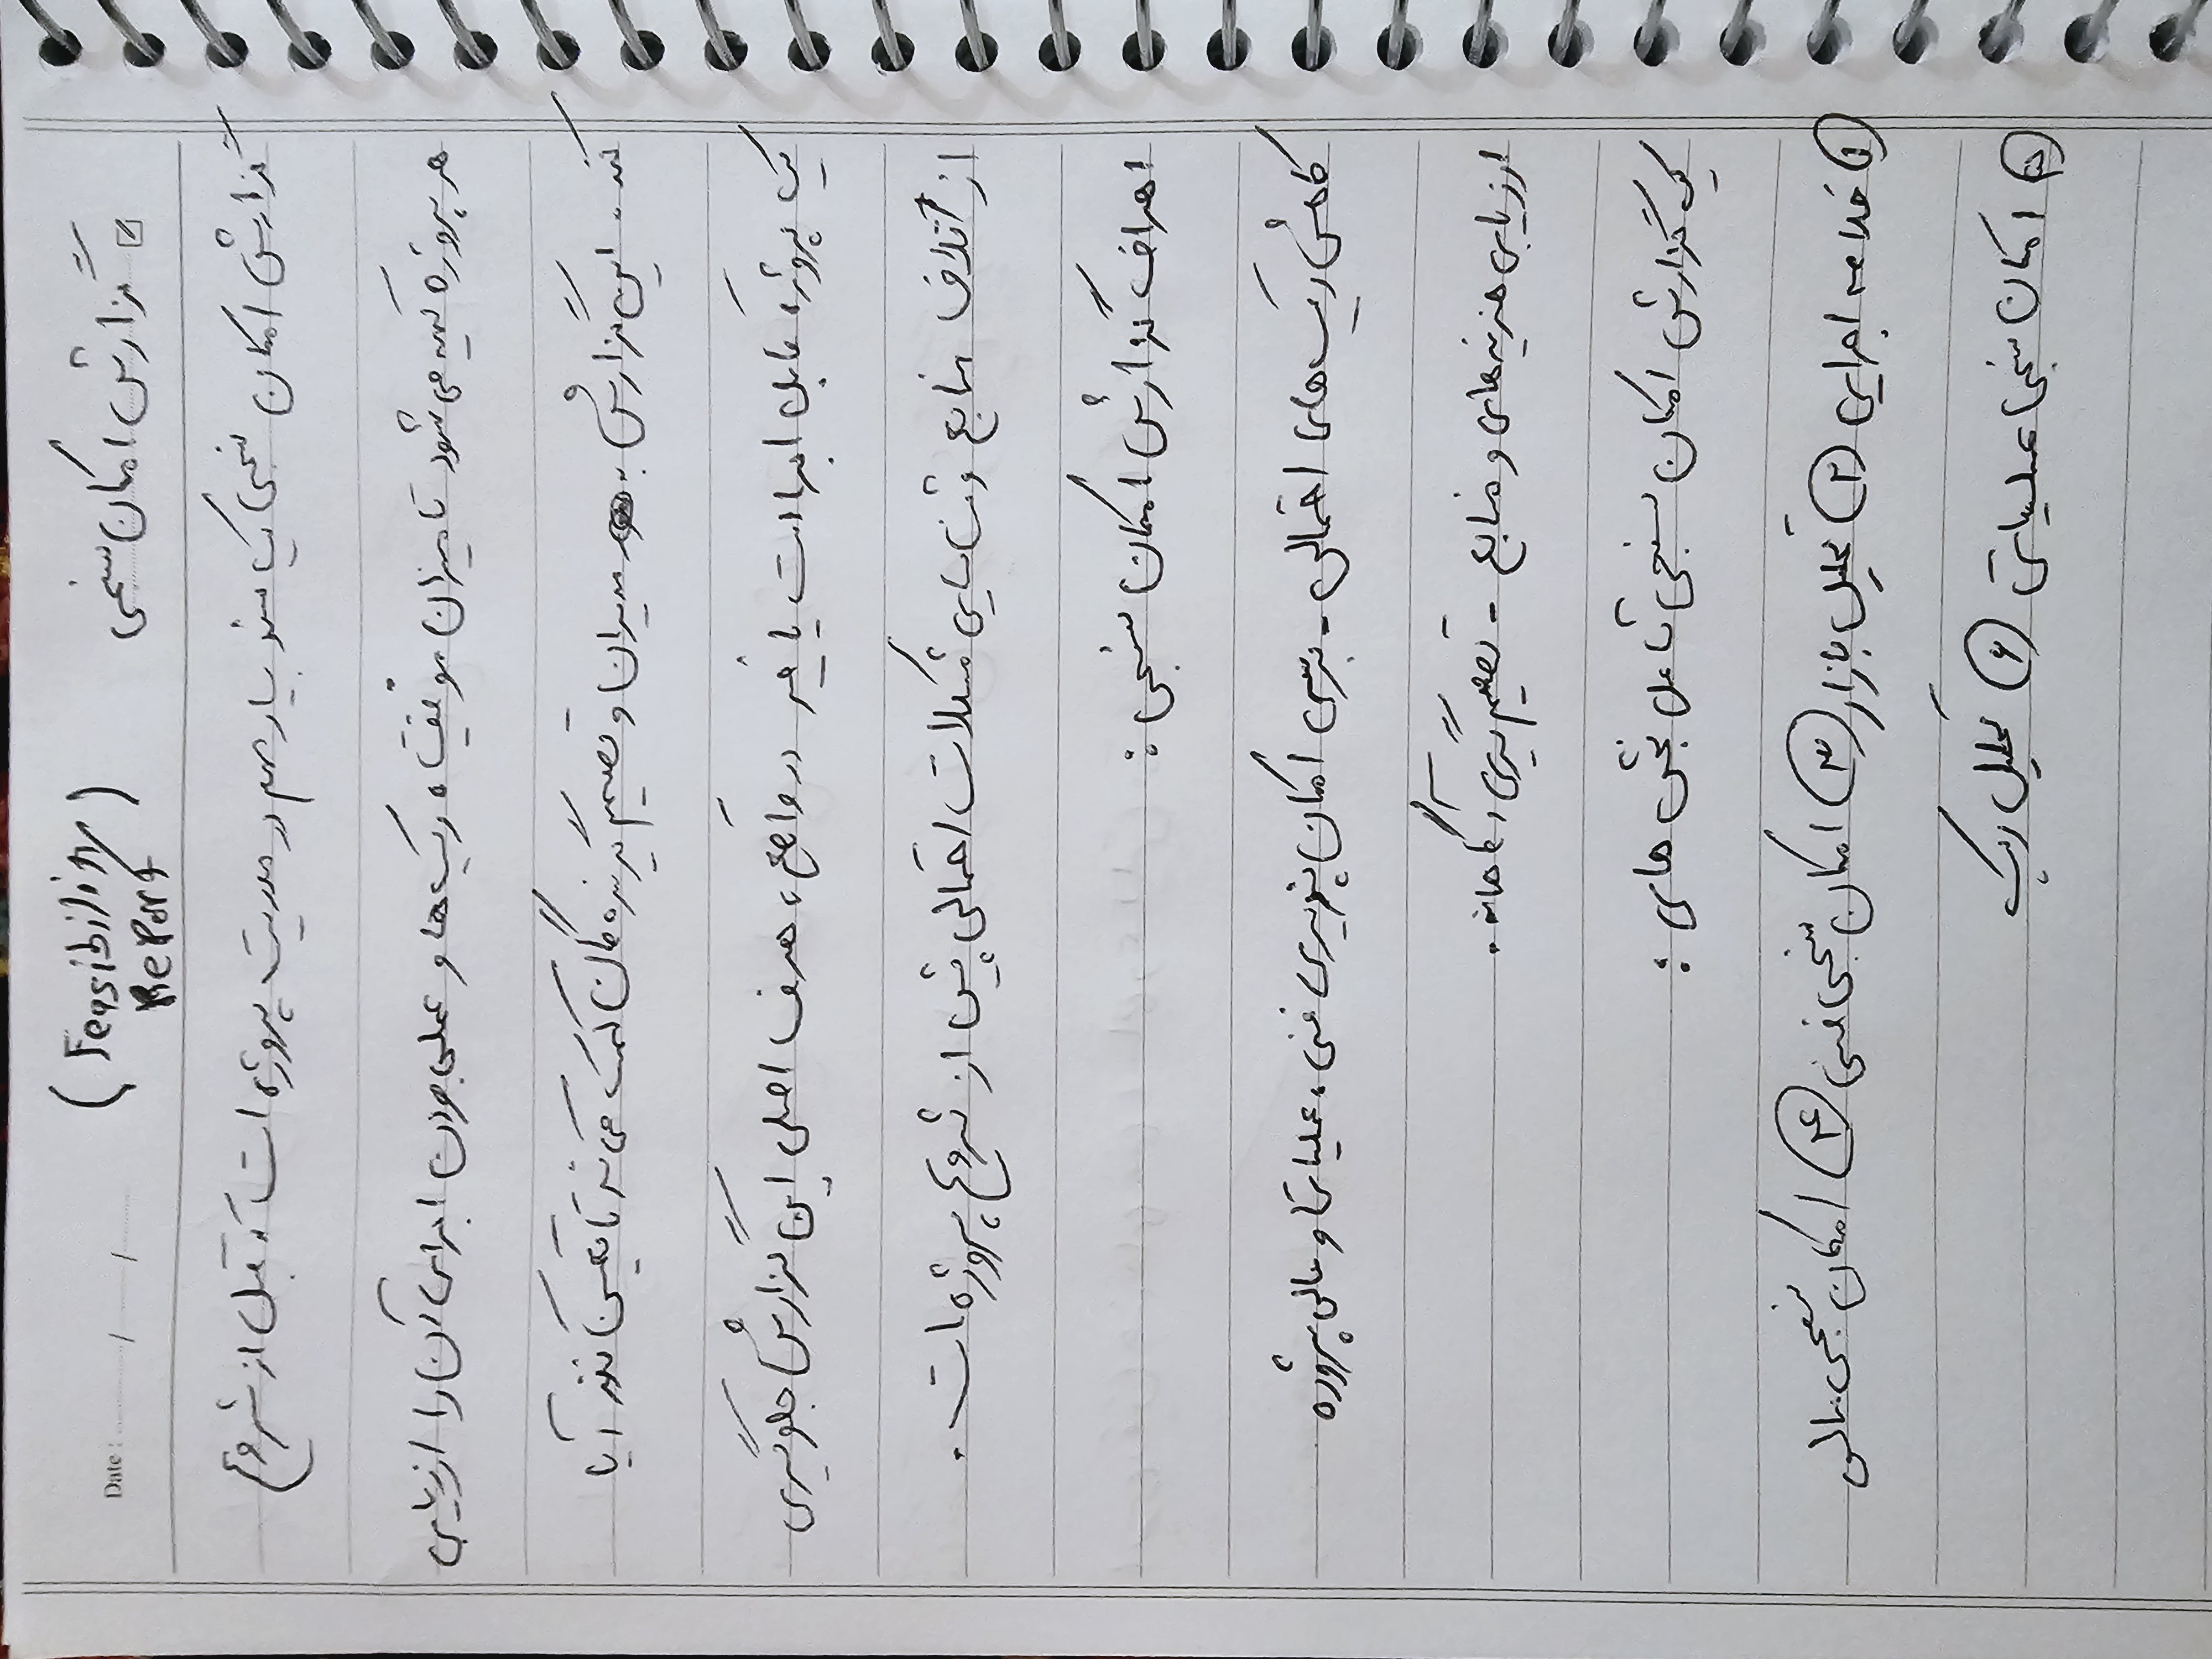 گزارش امکان سنجی (Feasibility
Report)
Date : ............/............/............
گزارش امکان سنجی یک سند بسیار مهم در مدیریت پروژه است که قبل از شروع
هر پروژه تهیه می شود تا میزان موفقیت، ریسک ها و عملی بودن اجرای آن را ارزیابی
کند. این گزارش به مدیران و تصمیم گیرنده گان کمک می کند تا تعیین کنند آیا
یک پروژه قابل اجرا است یا خیر در واقع، هدف اصلی این گزارش جلوگیری
از اتلاف منابع و شناسایی مشکلات احتمالی پیش از شروع پروژه است.
اهداف گزارش امکان سنجی :
کاهش ریسک های احتمالی - بررسی امکان پذیری فنی، عملیاتی و مالی پروژه
ارزیابی هزینه های و منابع - تصمیم گیری آگاهانه.
یک گزارش امکان سنجی شامل بخش های :
۱ خلاصه اجرایی ۲ تحلیل بازار ۳ امکان سنجی فنی ۴ امکان سنجی مالی
۵ امکان سنجی عملیاتی ۶ تحلیل ریسک